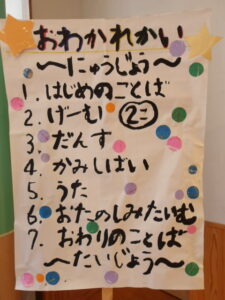 おわかれかい
～にゅうじょう～
1. はじめのことば
2. げーむ ②こ
3. だんす
4. かみしばい
5. うた
6. おたのしみたいむ
7. おわりのことば
～たいじょう～